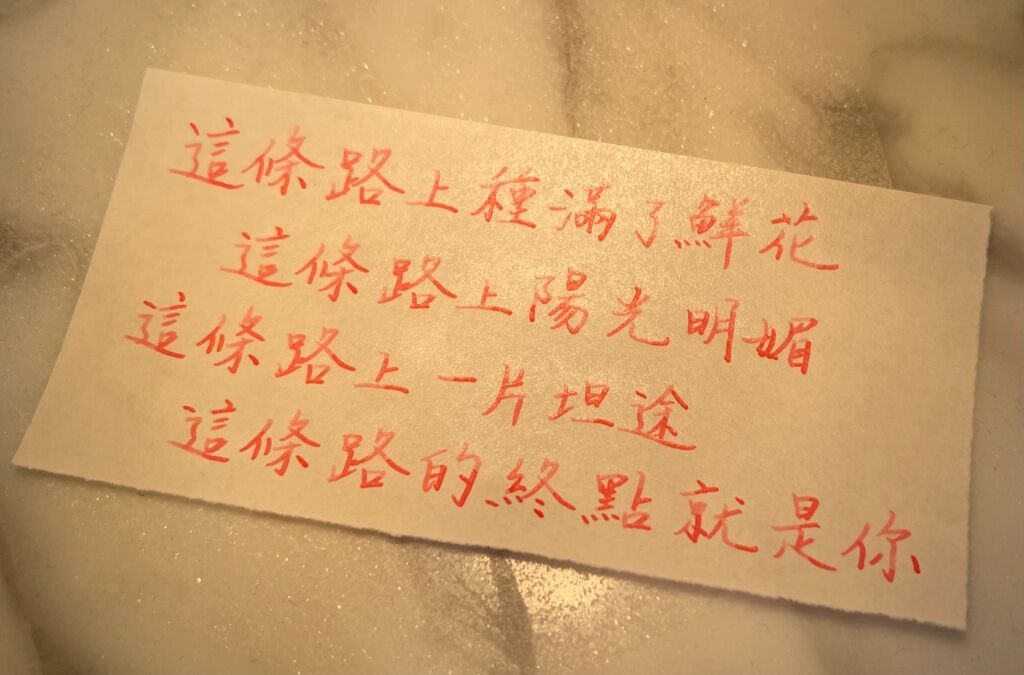 這條路上種滿了鮮花
這條路上陽光明媚
這條路上一片坦途
這條路的終點就是你